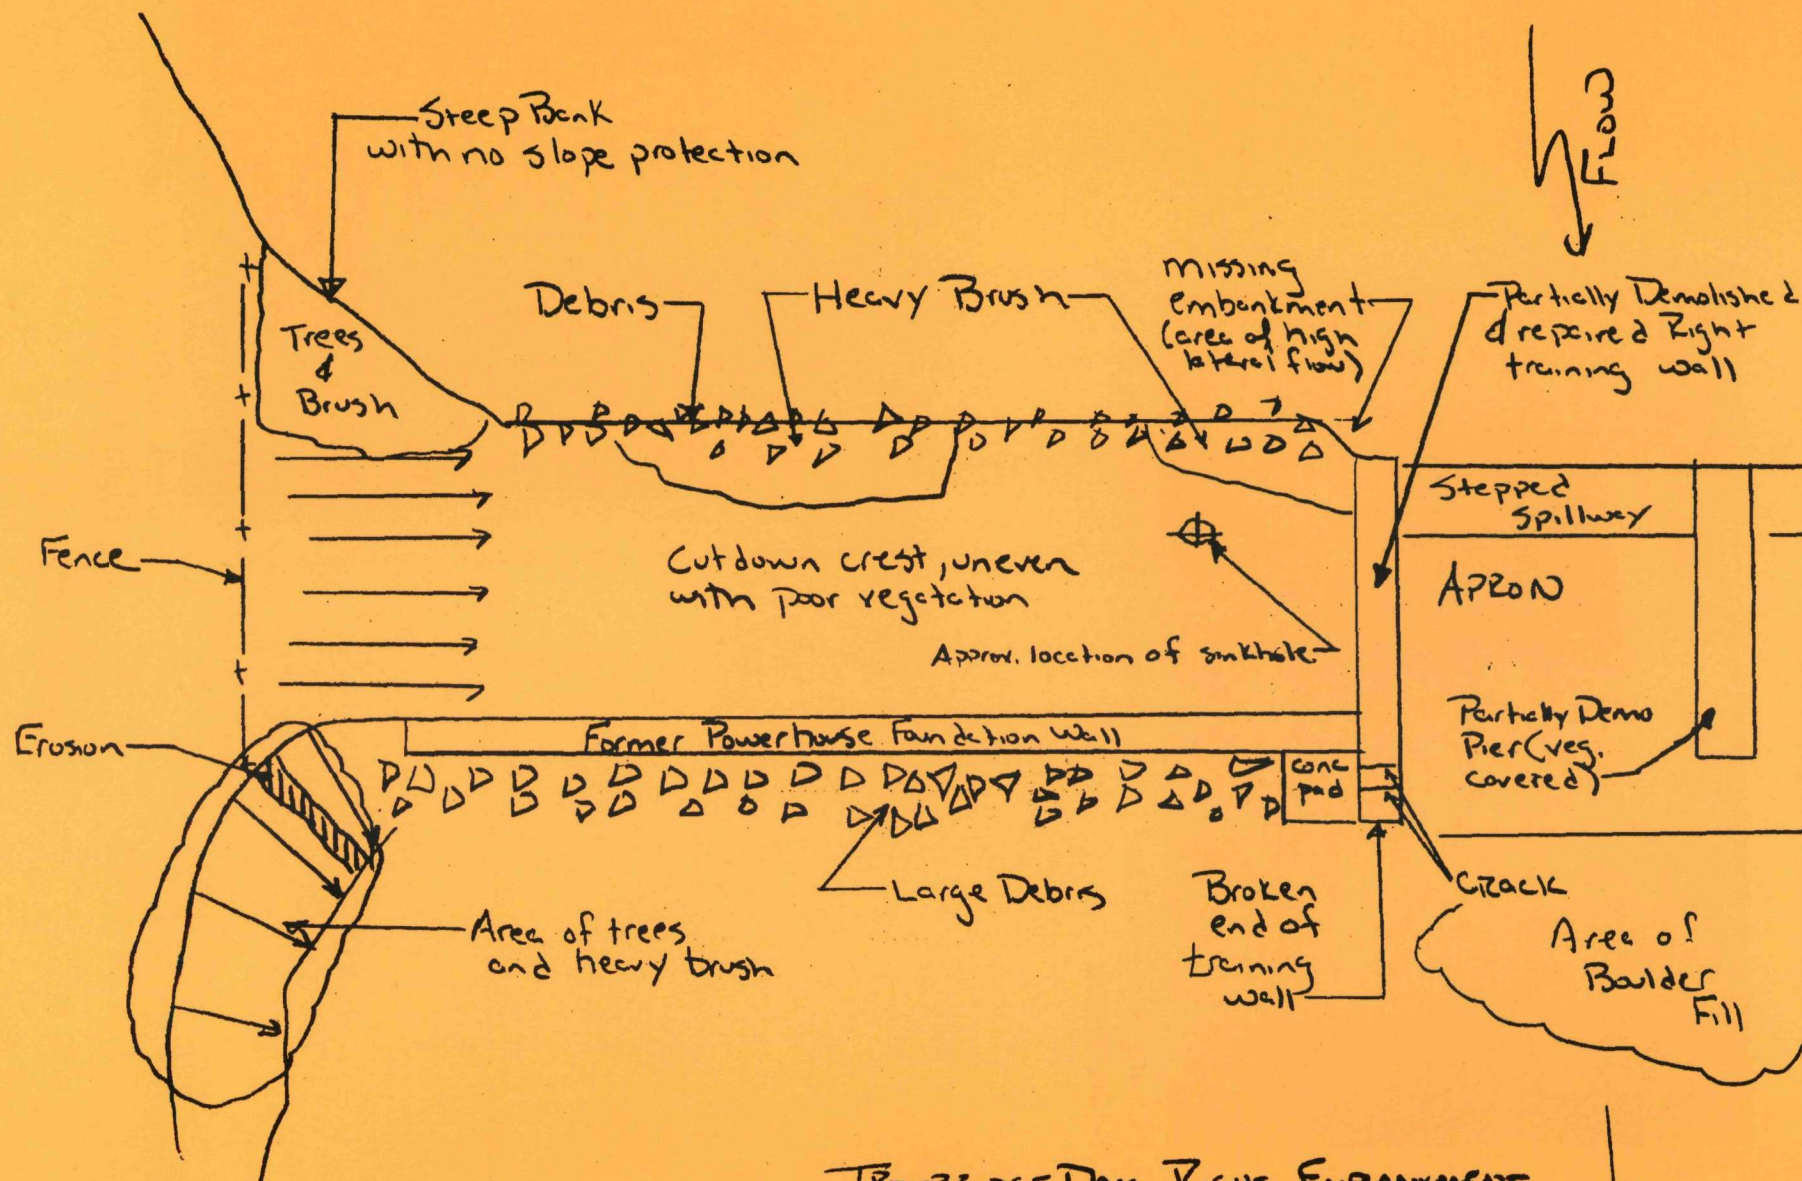 Steep Bank
with no slope protection
FLOW
Debris
Heavy Brush
missing
embankment
(area of high
lateral flow)
Partially Demolished
& repaired Right
training wall
Trees
&
Brush
Stepped
Spillway
Fence
Cutdown crest, uneven
with poor vegatation
APRON
Approx. location of sinkhole
Former Powerhouse Foundation Wall
Partially Demo
Pier (veg.
covered)
Erosion
conc
pad
Large Debris
Broken
end of
training
wall
CRACK
Area of trees
and heavy brush
Area of
Boulder
Fill
DAM RIGHT EMBANKMENT